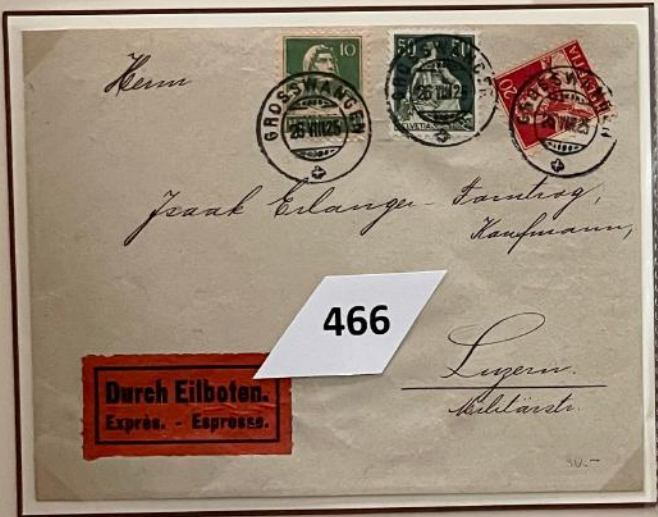 Herrn
10
GROSSWANGEN
26 VIII 25
50 50
HELVETIA
GROSSWANGEN
26 VIII 25
20
HELVETIA
GROSSWANGEN
26 VIII 25
Isaak Erlanger-
Kaufmann,
466
Luzern.
Militärstr.
Durch Eilboten.
Exprès. - Espresso.